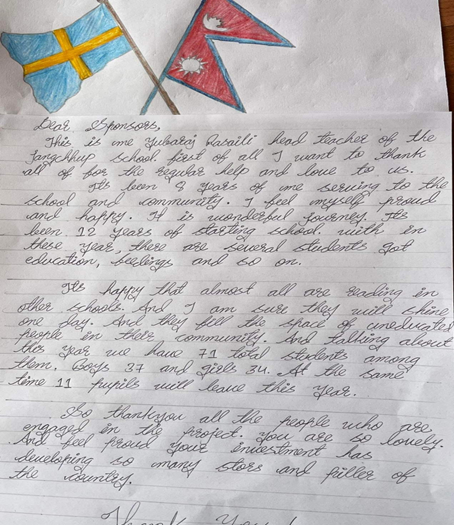 Dear Sponsors,
This is me Yubaraj Rasaili head teacher of the
Jangchhup school first of all I want to thank
all of for the regular help and love to us.
Its been 8 years of me serving to the
school and community. I feel myself proud
and happy. It is wonderful journey. Its
been 12 years of starting school. with in
these year, there are several students got
education, feelings and so on.
Its happy that almost all are reading in
other schools. And I am sure they will shine
one day. And they fill the space of uneducated
people in their community. And talking about
this year we have 71 total students among
them. Boys 37 and girls 34. At the same
time 11 pupils will leave this year.
So thankyou all the people who are
engaged in the project. You are so lovely.
And feel proud your investment has
developing so many stars and piller of
the country.
Thank You